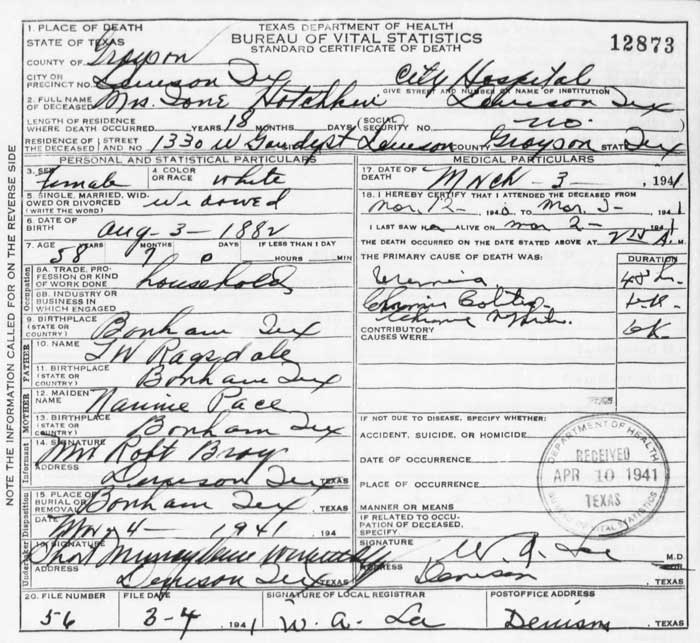 NOTE THE INFORMATION CALLED FOR ON THE REVERSE SIDE
1. PLACE OF DEATH
STATE OF TEXAS
TEXAS DEPARTMENT OF HEALTH
BUREAU OF VITAL STATISTICS
STANDARD CERTIFICATE OF DEATH
12873
COUNTY OF Grayson
CITY OR PRECINCT NO. Denison Tex City Hospital
GIVE STREET AND NUMBER OR NAME OF INSTITUTION
2. FULL NAME OF DECEASED Mrs. Ione Hotchkiss Denison Tex
LENGTH OF RESIDENCE WHERE DEATH OCCURRED YEARS 18 MONTHS DAYS (SOCIAL SECURITY NO. no.
RESIDENCE OF THE DECEASED { STREET AND NO. 1330 W Denison COUNTY Grayson STATE Tex
PERSONAL AND STATISTICAL PARTICULARS
3. SEX female 4. COLOR OR RACE white
5. SINGLE, MARRIED, WIDOWED OR DIVORCED (WRITE THE WORD) widowed
6. DATE OF BIRTH Aug-3-1882
7. AGE 58 YEARS 7 MONTHS 0 DAYS IF LESS THAN 1 DAY HOURS MIN
Occupation
8A. TRADE, PROFESSION OR KIND OF WORK DONE household
8B. INDUSTRY OR BUSINESS IN WHICH ENGAGED
9. BIRTHPLACE (STATE OR COUNTRY) Bonham Tex
FATHER
10. NAME T W Ragsdale
11. BIRTHPLACE (STATE OR COUNTRY) Bonham Tex
MOTHER
12. MAIDEN NAME Nannie Pace
13. BIRTHPLACE (STATE OR COUNTRY) Bonham Tex
Informant
14. SIGNATURE Mrs Robt Bray
ADDRESS Denison Tex TEXAS
Undertaker Disposition
15. PLACE OF BURIAL OR REMOVAL Bonham Tex, TEXAS
DATE Mar-4 1941 194
SIGNATURE
ADDRESS Denison Tex TEXAS
MEDICAL PARTICULARS
17. DATE OF DEATH March-3-, 1941
18. I HEREBY CERTIFY THAT I ATTENDED THE DECEASED FROM
Mar. 12-, 1940 TO Mar 3-, 1941
I LAST SAW h ALIVE ON mar 2- 1941
THE DEATH OCCURRED ON THE DATE STATED ABOVE AT A. M.
THE PRIMARY CAUSE OF DEATH WAS: DURATION
Uremia 48 h
Chronic Colitis
CONTRIBUTORY CAUSES WERE: Chronic
IF NOT DUE TO DISEASE, SPECIFY WHETHER:
ACCIDENT, SUICIDE, OR HOMICIDE
DATE OF OCCURRENCE
PLACE OF OCCURRENCE
MANNER OR MEANS
IF RELATED TO OCCUPATION OF DECEASED, SPECIFY
DEPARTMENT OF HEALTH
RECEIVED
APR 10 1941
TEXAS
BUREAU OF VITAL STATISTICS
SIGNATURE W. A. Lee M.D.
ADDRESS Denison, TEXAS
20. FILE NUMBER FILE DATE SIGNATURE OF LOCAL REGISTRAR POSTOFFICE ADDRESS
56 3-4, 1941 W. A. Lee Denison, TEXAS